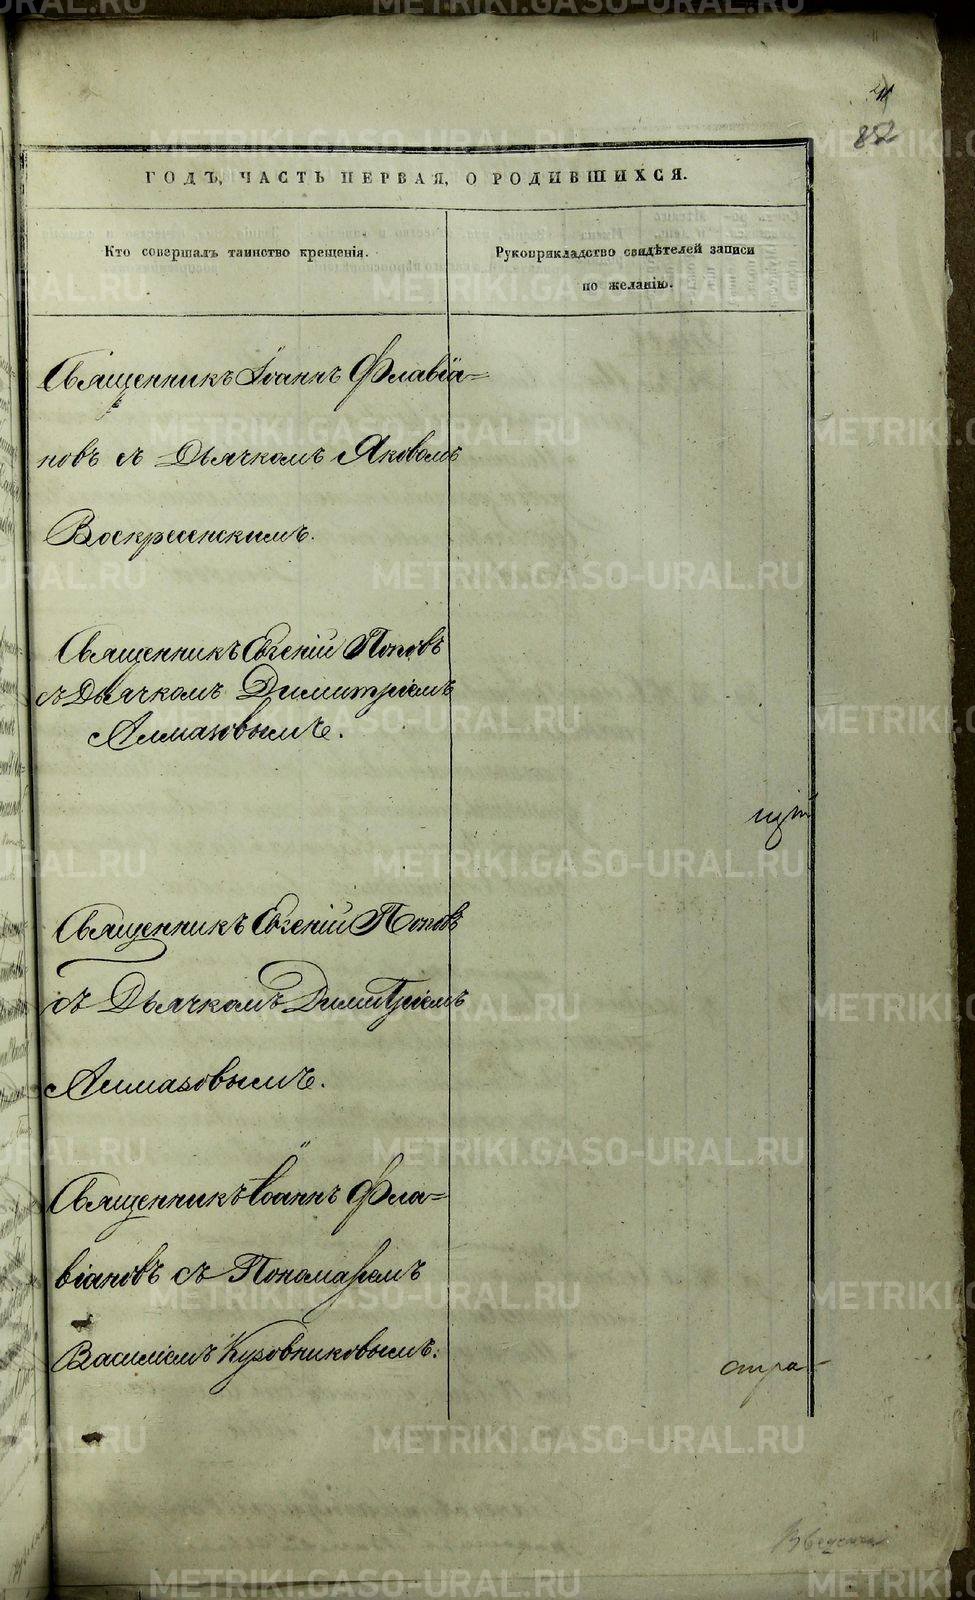 852
ГОДЪ, ЧАСТЬ ПЕРВАЯ, О РОДИВШИХСЯ.
Кто совершалъ таинство крещенія.
Рукоприкладство свидѣтелей записи
по желанію.
Священникъ Іоаннъ Флавіа=
новъ съ Дьячкомъ Яковомъ
Воскресенскимъ.
Священникъ Евгеній Поповъ
съ Дьячкомъ Димитріемъ
Алмазовымъ.
Священникъ Евгеній Поповъ
съ Дьячкомъ Димитріемъ
Алмазовымъ.
Священникъ Іоаннъ Фла=
віановъ съ Пономаремъ
Василіемъ Кузовниковымъ.
стра-
METRIKI.GASO-URAL.RU